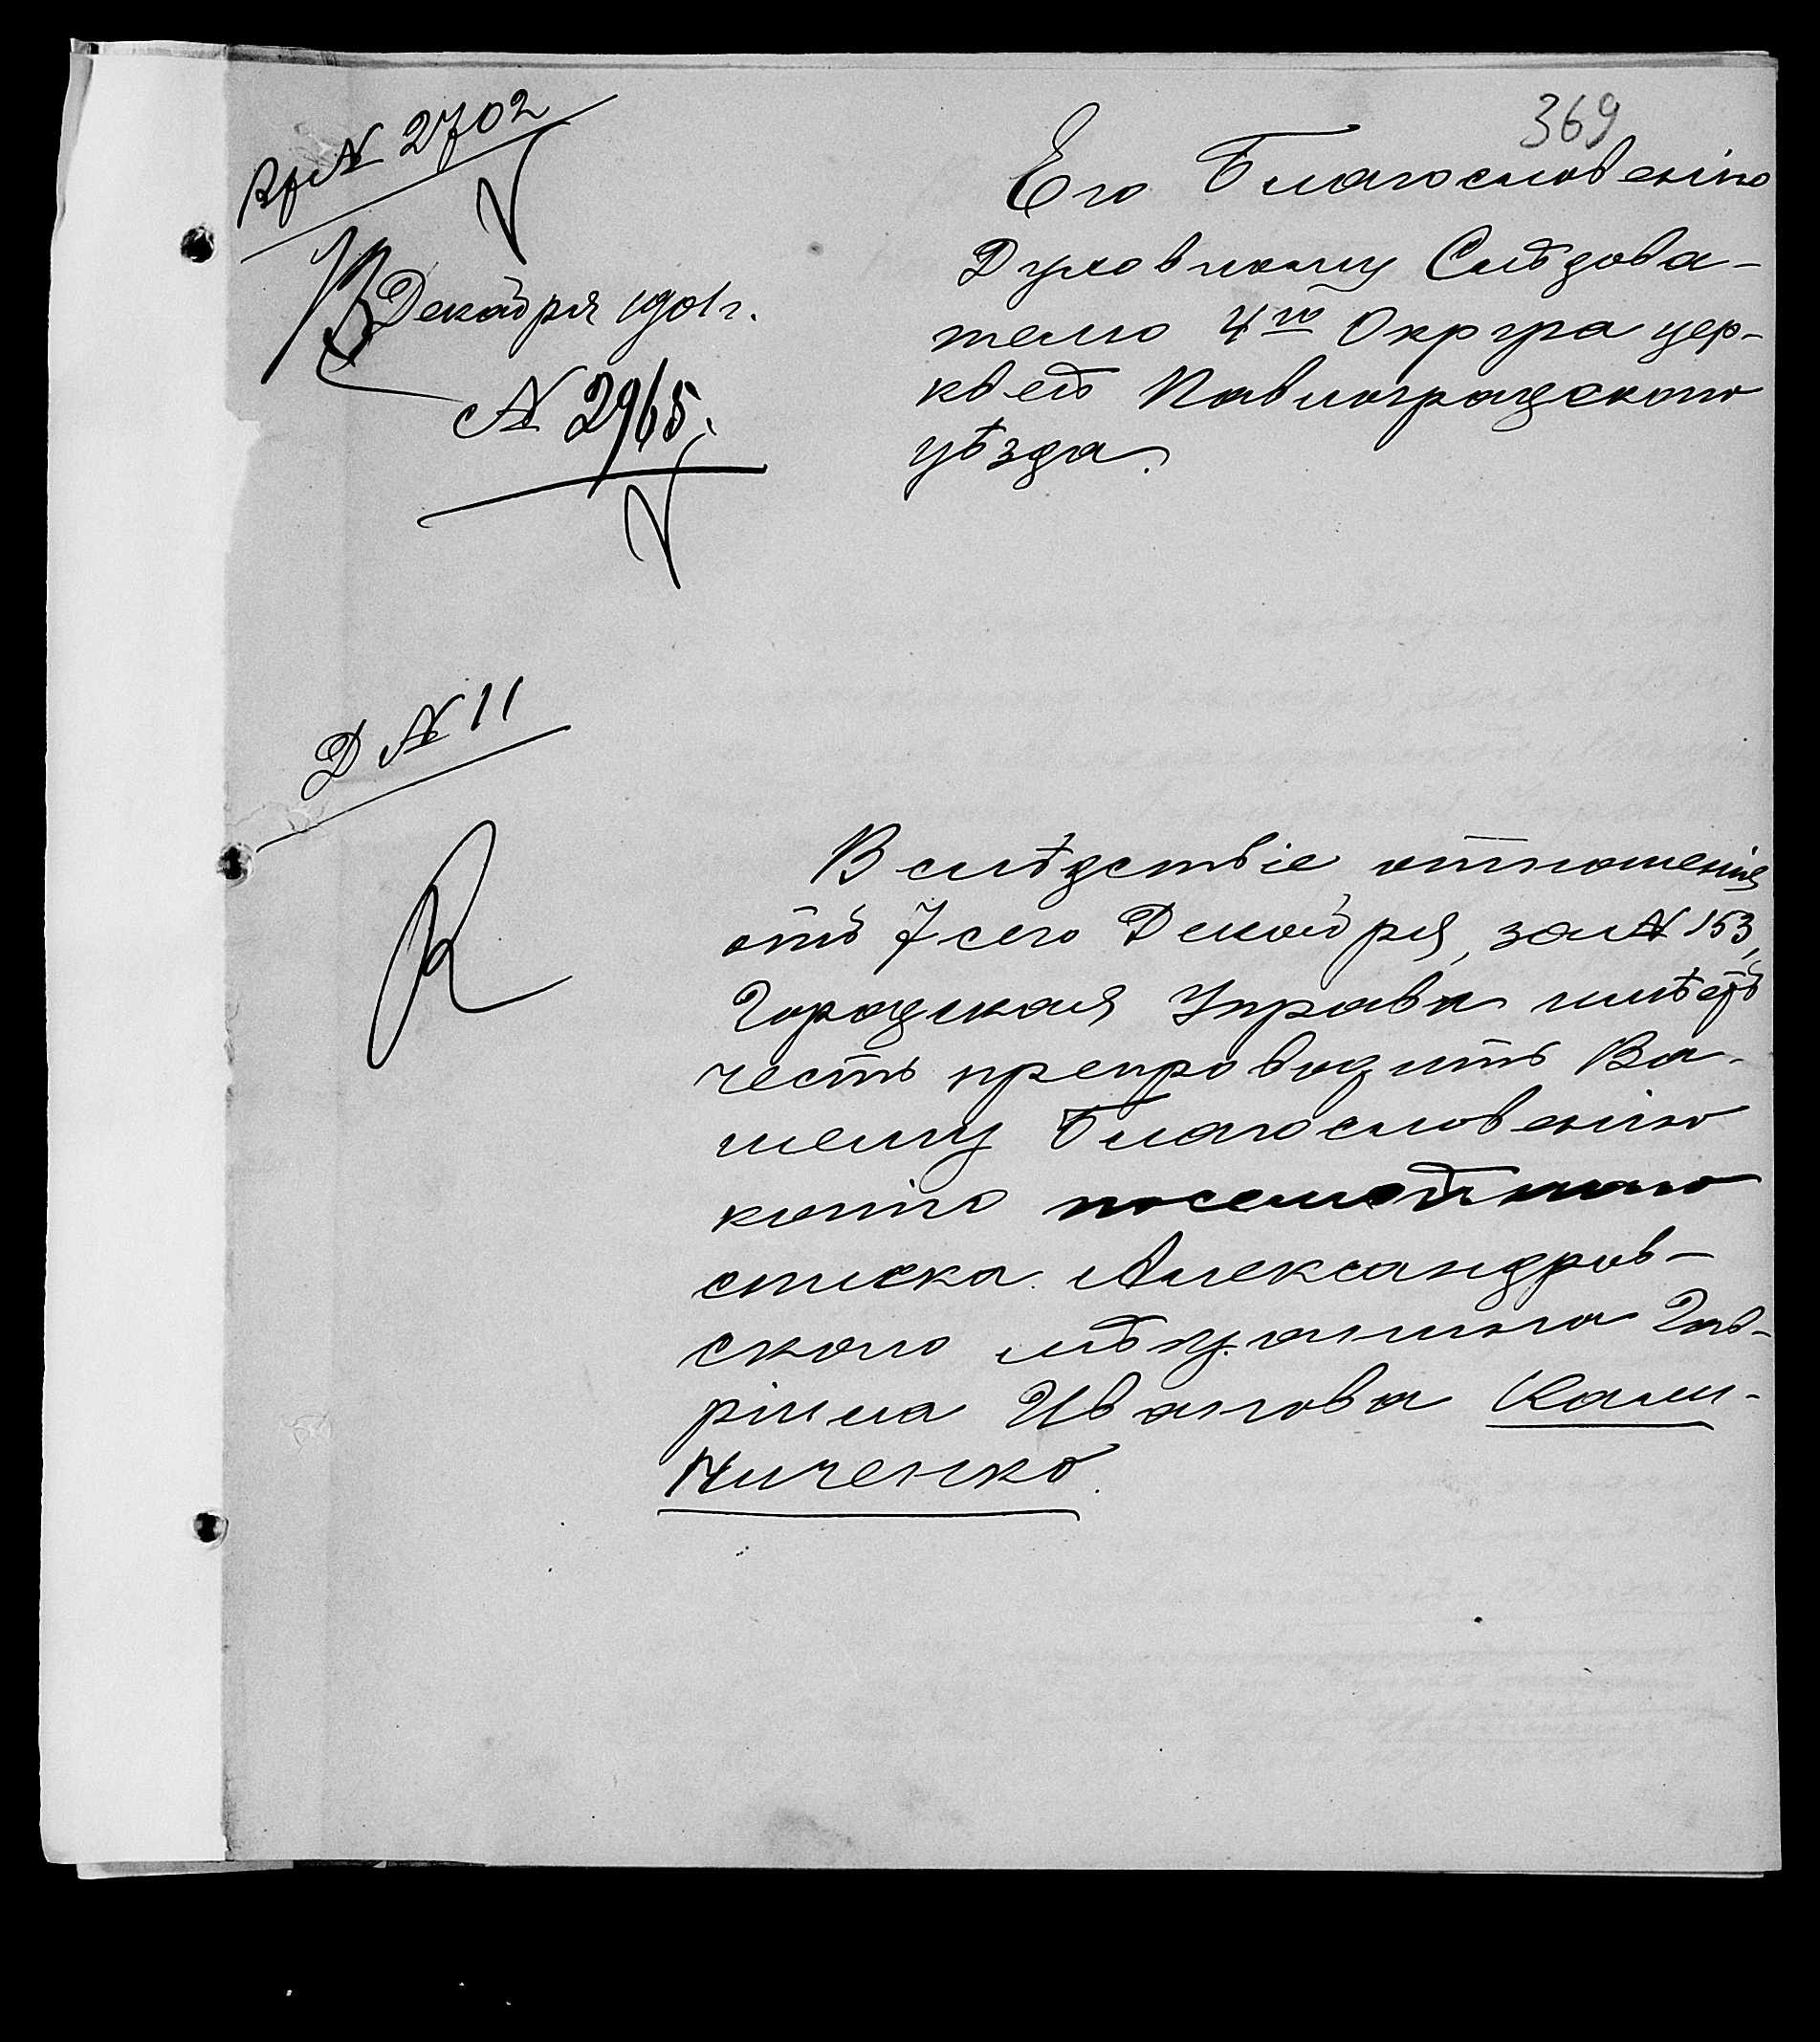 369
Вх № 2702
13 Декабря 1901 г.
№ 2965.
Его Благословенію
Духовному Слѣдова-
телю 4го Округа цер-
квей Павлоградскаго
уѣзда.
Д № 11
Вслѣдствіе отношенія
отъ 7 сего Декабря, за № 153,
Городская Управа имѣетъ
честь препроводить Ва-
шему Благословенію
копію посемейнаго
списка Александров-
скаго мѣщанина Гав-
ріила Иванова Кали-
ниченко.